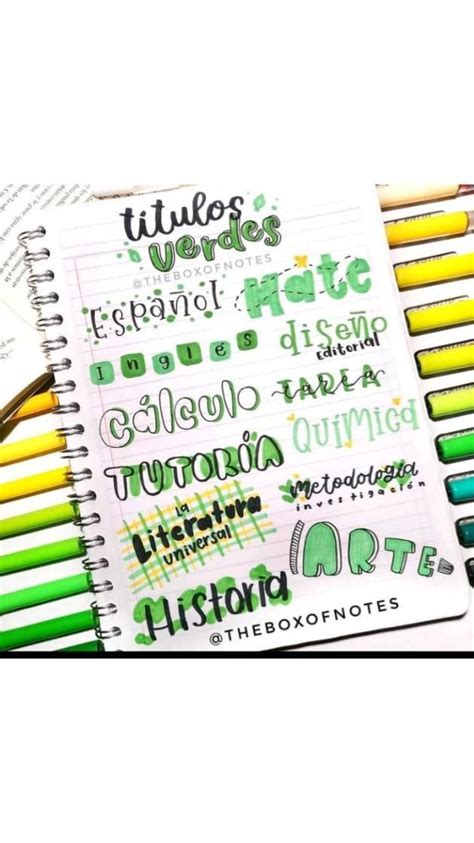 titulos
verdes
@THEBOXOFNOTES
Español
Mate
Inglés
diseño
Editorial
Cálculo
TAREA
tarea
TUTORÍA
QUÍMICA
La
Literatura
universal
metodología
investigación
Historia
ARTE
@THEBOXOFNOTES